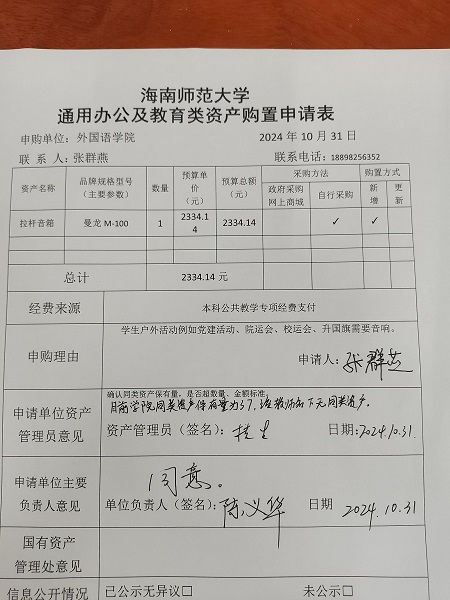 海南师范大学
通用办公及教育类资产购置申请表
申购单位：外国语学院 2024 年 10 月 31 日
联 系 人：张群燕 联系电话：18898256352
资产名称 品牌规格型号（主要参数） 数量 预算单价（元） 预算总额（元） 采购方法 购置方式
政府采购网上商城 自行采购 新增 更新
拉杆音箱 曼龙 M-100 1 2334.14 2334.14 ✓ ✓
总计 2334.14 元
经费来源 本科公共教学专项经费支付
学生户外活动例如党建活动、院运会、校运会、升国旗需要音响。
申购理由
申请人：张群燕
确认同类资产保有量，是否超数量、金额标准。
申请单位资产管理员意见 目前学院同类资产保有量为37，经教师名下无同类资产。
资产管理员（签名）： 日期：2024.10.31.
申请单位主要负责人意见 同意。
单位负责人（签名）：陈义华 日期 2024.10.31
国有资产管理处意见
信息公开情况 已公示无异议□ 未公示□